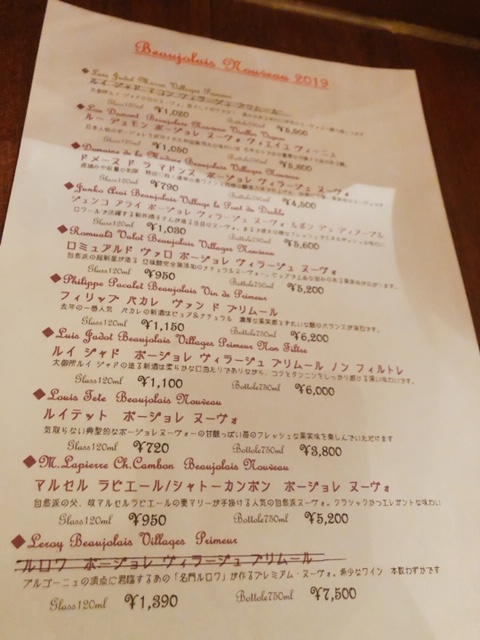 Beaujolais Nouveau 2019
◆Luis Jadot Macon Villages Primeur
ルイ ジャド マコン ヴィラージュ プリムール
Glass120ml ¥1,020 Bottole750ml ¥5,500
◆Lou Dumont Beaujolais Nouveau Vieilles Vignes
ルー デュモン ボージョレ ヌーヴォ ヴィエイユ ヴィーニュ
Glass120ml ¥1,050 Bottole750ml ¥5,800
◆Domaine de la Madone Beaujolais Villages Nouveau
ドメーヌ ド ラ マドンヌ ボージョレ ヴィラージュ ヌーヴォ
Glass120ml ¥790 Bottole750ml ¥4,500
◆Junko Arai Beaujolais Village le Pont du Diable
ジュンコ アライ ボージョレ ヴィラージュ ヌーヴォ ルポン デュ ディアーブル
Glass120ml ¥1,030 Bottole750ml ¥5,600
◆Romuald Valot Beaujolais Villages Nouveau
ロミュアルド ヴァロ ボージョレ ヴィラージュ ヌーヴォ
Glass120ml ¥950 Bottole750ml ¥5,200
◆Philippe Pacalet Beaujolais Vin de Primeur
フィリップ パカレ ヴァン ド プリムール
Glass120ml ¥1,150 Bottole750ml ¥6,200
◆Luis Jadot Beaujolais Villages Primeur Non Filtre
ルイ ジャド ボージョレ ヴィラージュ プリムール ノン フィルトレ
大御所ルイ ジャドの造る新酒は柔らかな口当たりでありながら、コクとタンニンをしっかり感じる深い味わいです。
Glass120ml ¥1,100 Bottole750ml ¥6,000
◆Louis Tete Beaujolais Nouveau
ルイテット ボージョレ ヌーヴォ
気取らない典型的なボージョレヌーヴォーの甘酸っぱい苺のフレッシュな果実味を楽しんでいただけます
Glass120ml ¥720 Bottole750ml ¥3,800
◆M.Lapierre Ch.Cambon Beaujolais Nouveau
マルセル ラピエール/シャトーカンボン ボージョレ ヌーヴォ
自然派の父、故マルセルラピエールの妻マリーが手掛ける人気の自然派ヌーヴォ。クラシックかつエレガントな味わい
Glass120ml ¥950 Bottole750ml ¥5,200
◆Leroy Beaujolais Villages Primeur
ルロワ ボージョレ ヴィラージュ プリムール
ブルゴーニュの頂点に君臨するあの「名門ルロワ」が作るプレミアム・ヌーヴォ。希少なワイン 本数わずかです
Glass120ml ¥1,390 Bottole750ml ¥7,500